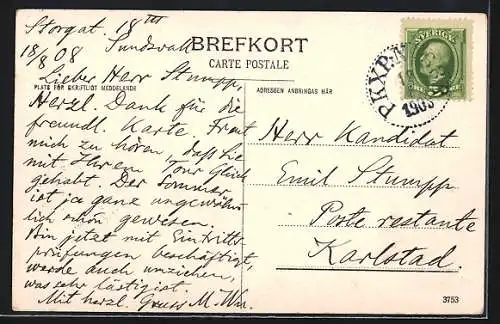 Storgat. 18 III
Sundsvall
18/8 08
BREFKORT
CARTE POSTALE
Lieber Herr Stumpp,
PLATS FÖR SKRIFTLIGT MEDDELANDE
ADRESSEN ANBRINGAS HÄR
Herzl. Dank für die
freundl. Karte. Freut
mich zu hören, daß Sie
mit Ihrem Tour Glück
gehabt. Der Sommer
ist ja ganz ungewöhn-
lich schön gewesen.
Bin jetzt mit Eintritts
prüfungen beschäftigt,
werde auch umziehen,
was sehr lästig ist.
Mit herzl. Gruss M.
Herr Kandidat
Emil Stumpp
Poste restante
Karlstad
SVERIGE
PKXP
3753